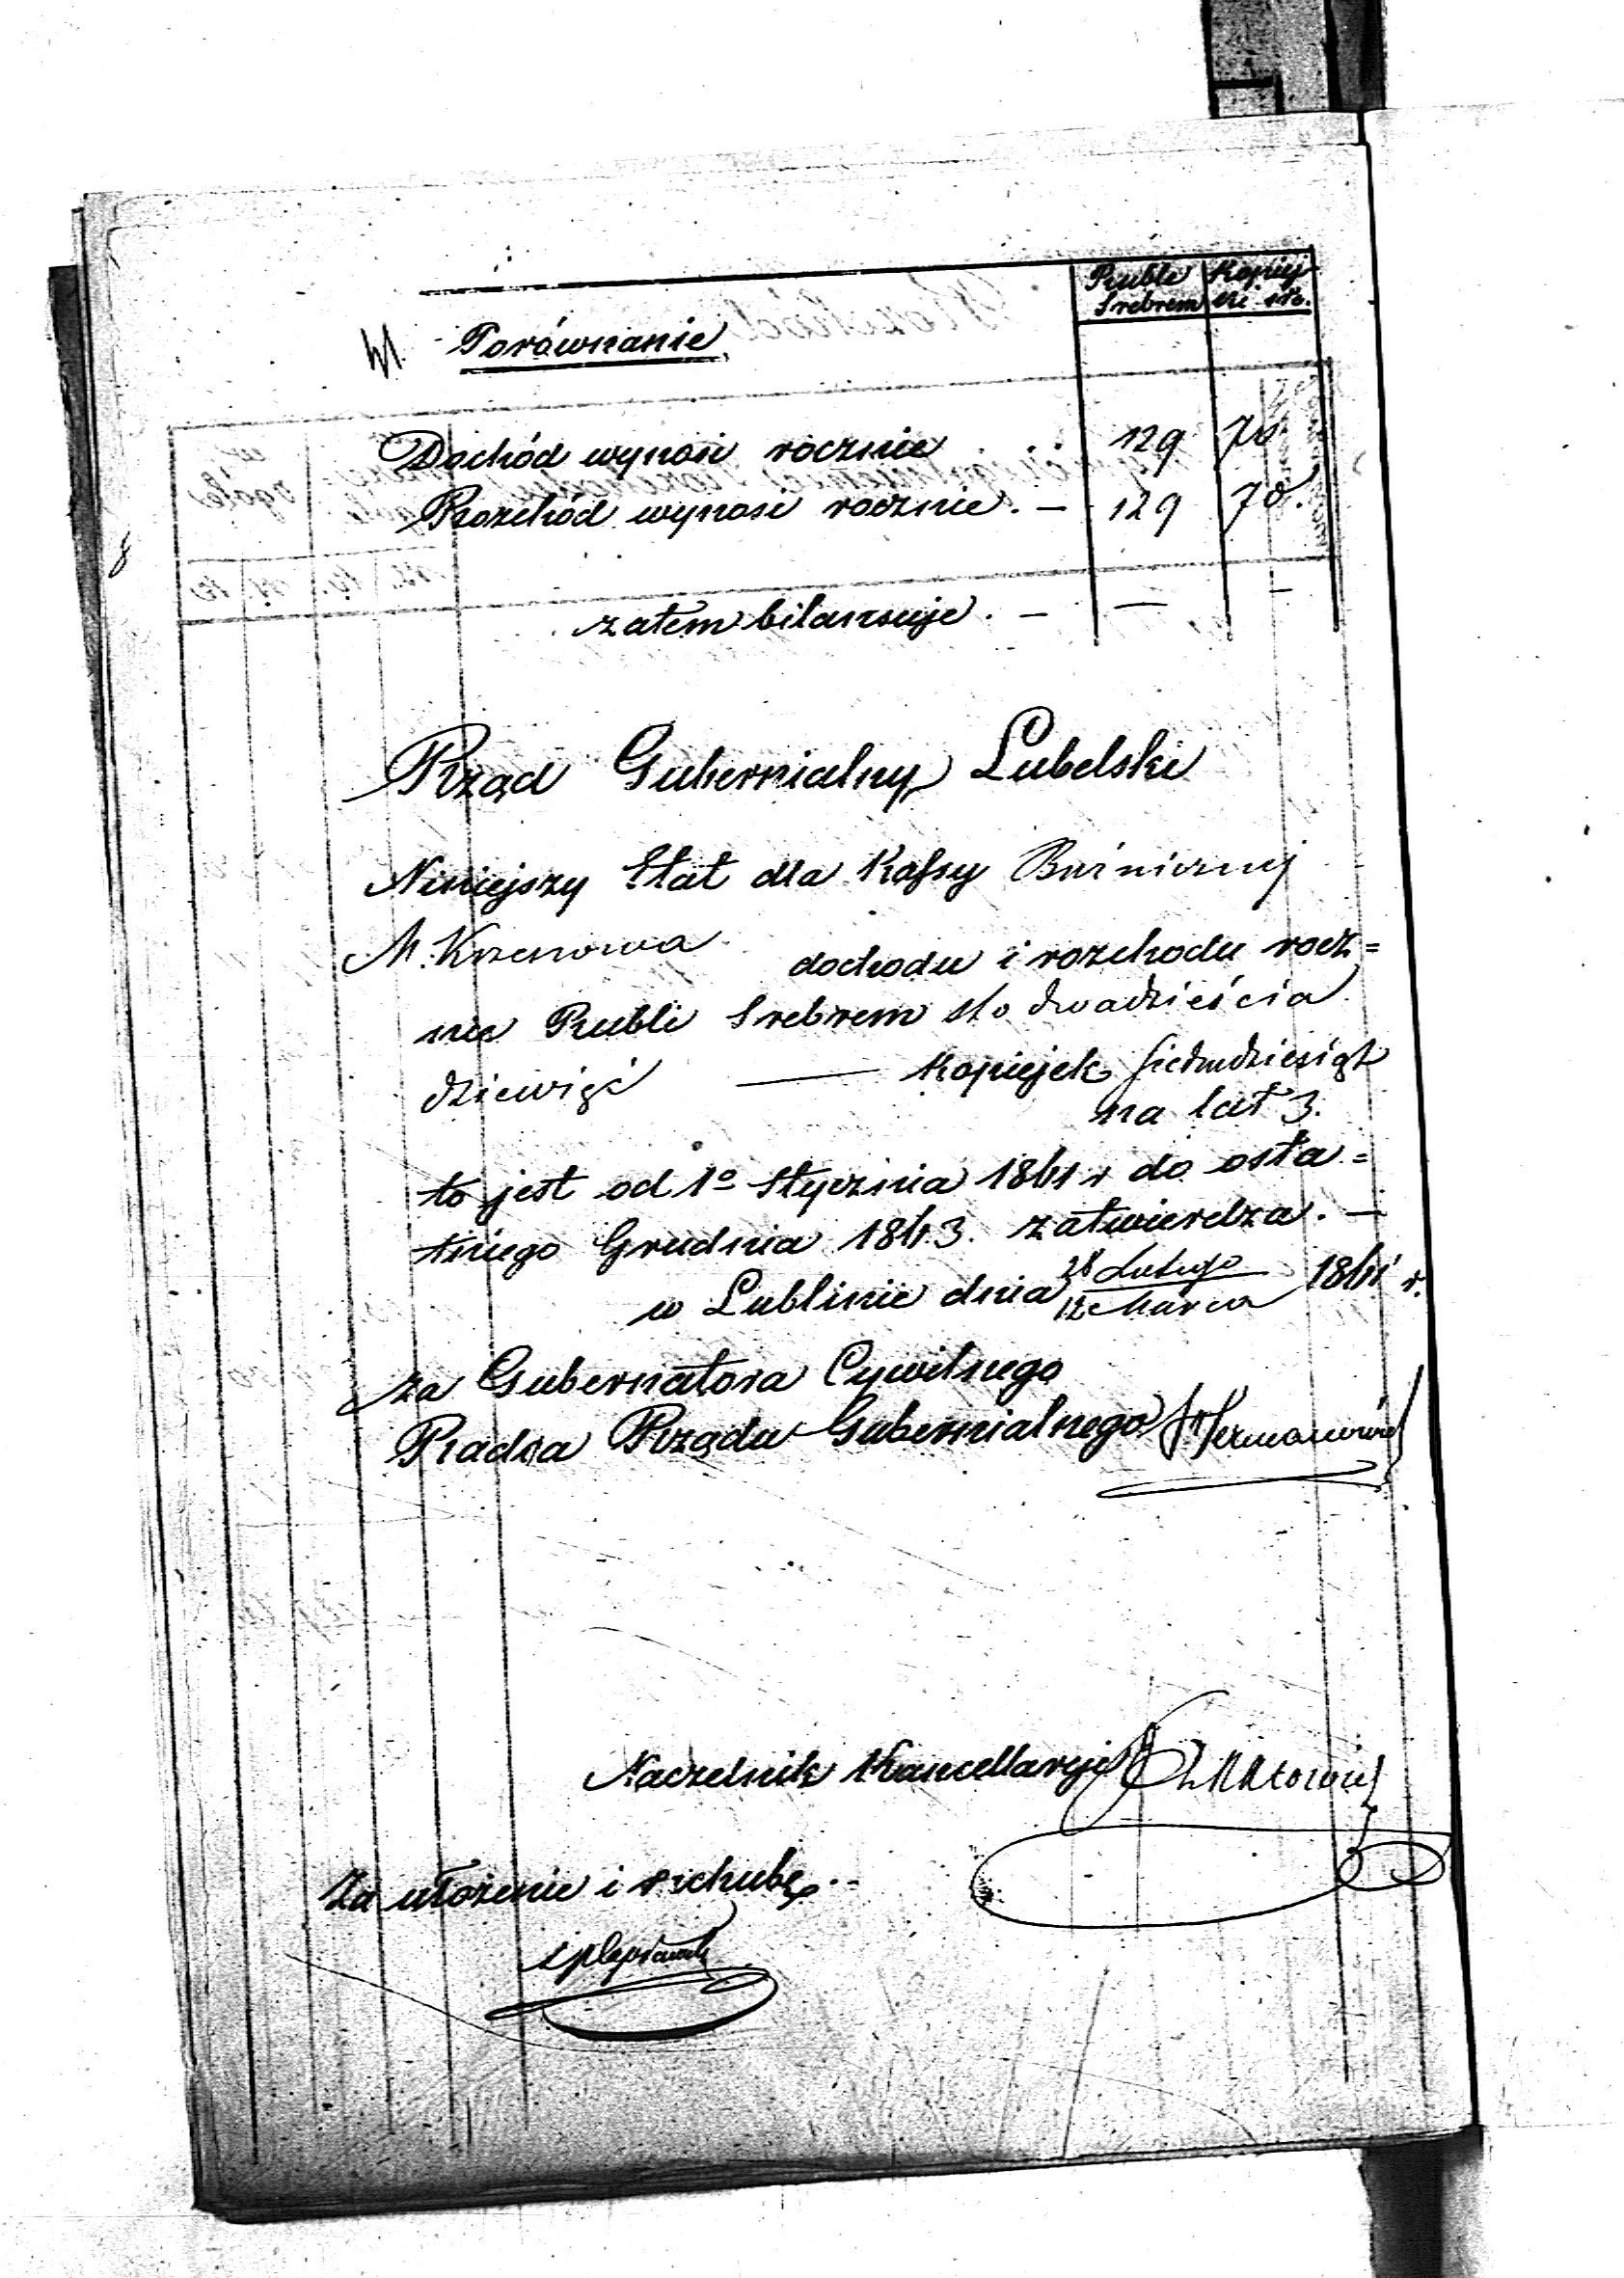 Ruble Kopiej
Srebrem ki sre.
Porównanie
Dochód wynosi rocznie 129 70
Rozchód wynosi rocznie. — 129 70.
zatem bilansuje. — — —
Rząd Gubernialny Lubelski
Niniejszy Etat dla Kassy Bóżniczney
M. Krzesowa dochodu i rozchodu rocz=
nie Rubli Srebrem sto dwadzieścia
dziewięć — Kopiejek siedmdziesiąt
na lat 3.
to jest od 1o Stycznia 1861 r do osta=
tniego Grudnia 1863. zatwierdza. —
w Lublinie dnia 28 Lutego / 12 Marca 1861 r.
za Gubernatora Cywilnego
Radca Rządu Gubernialnego
Naczelnik Kancellaryi
Za ułożenie i rachubę